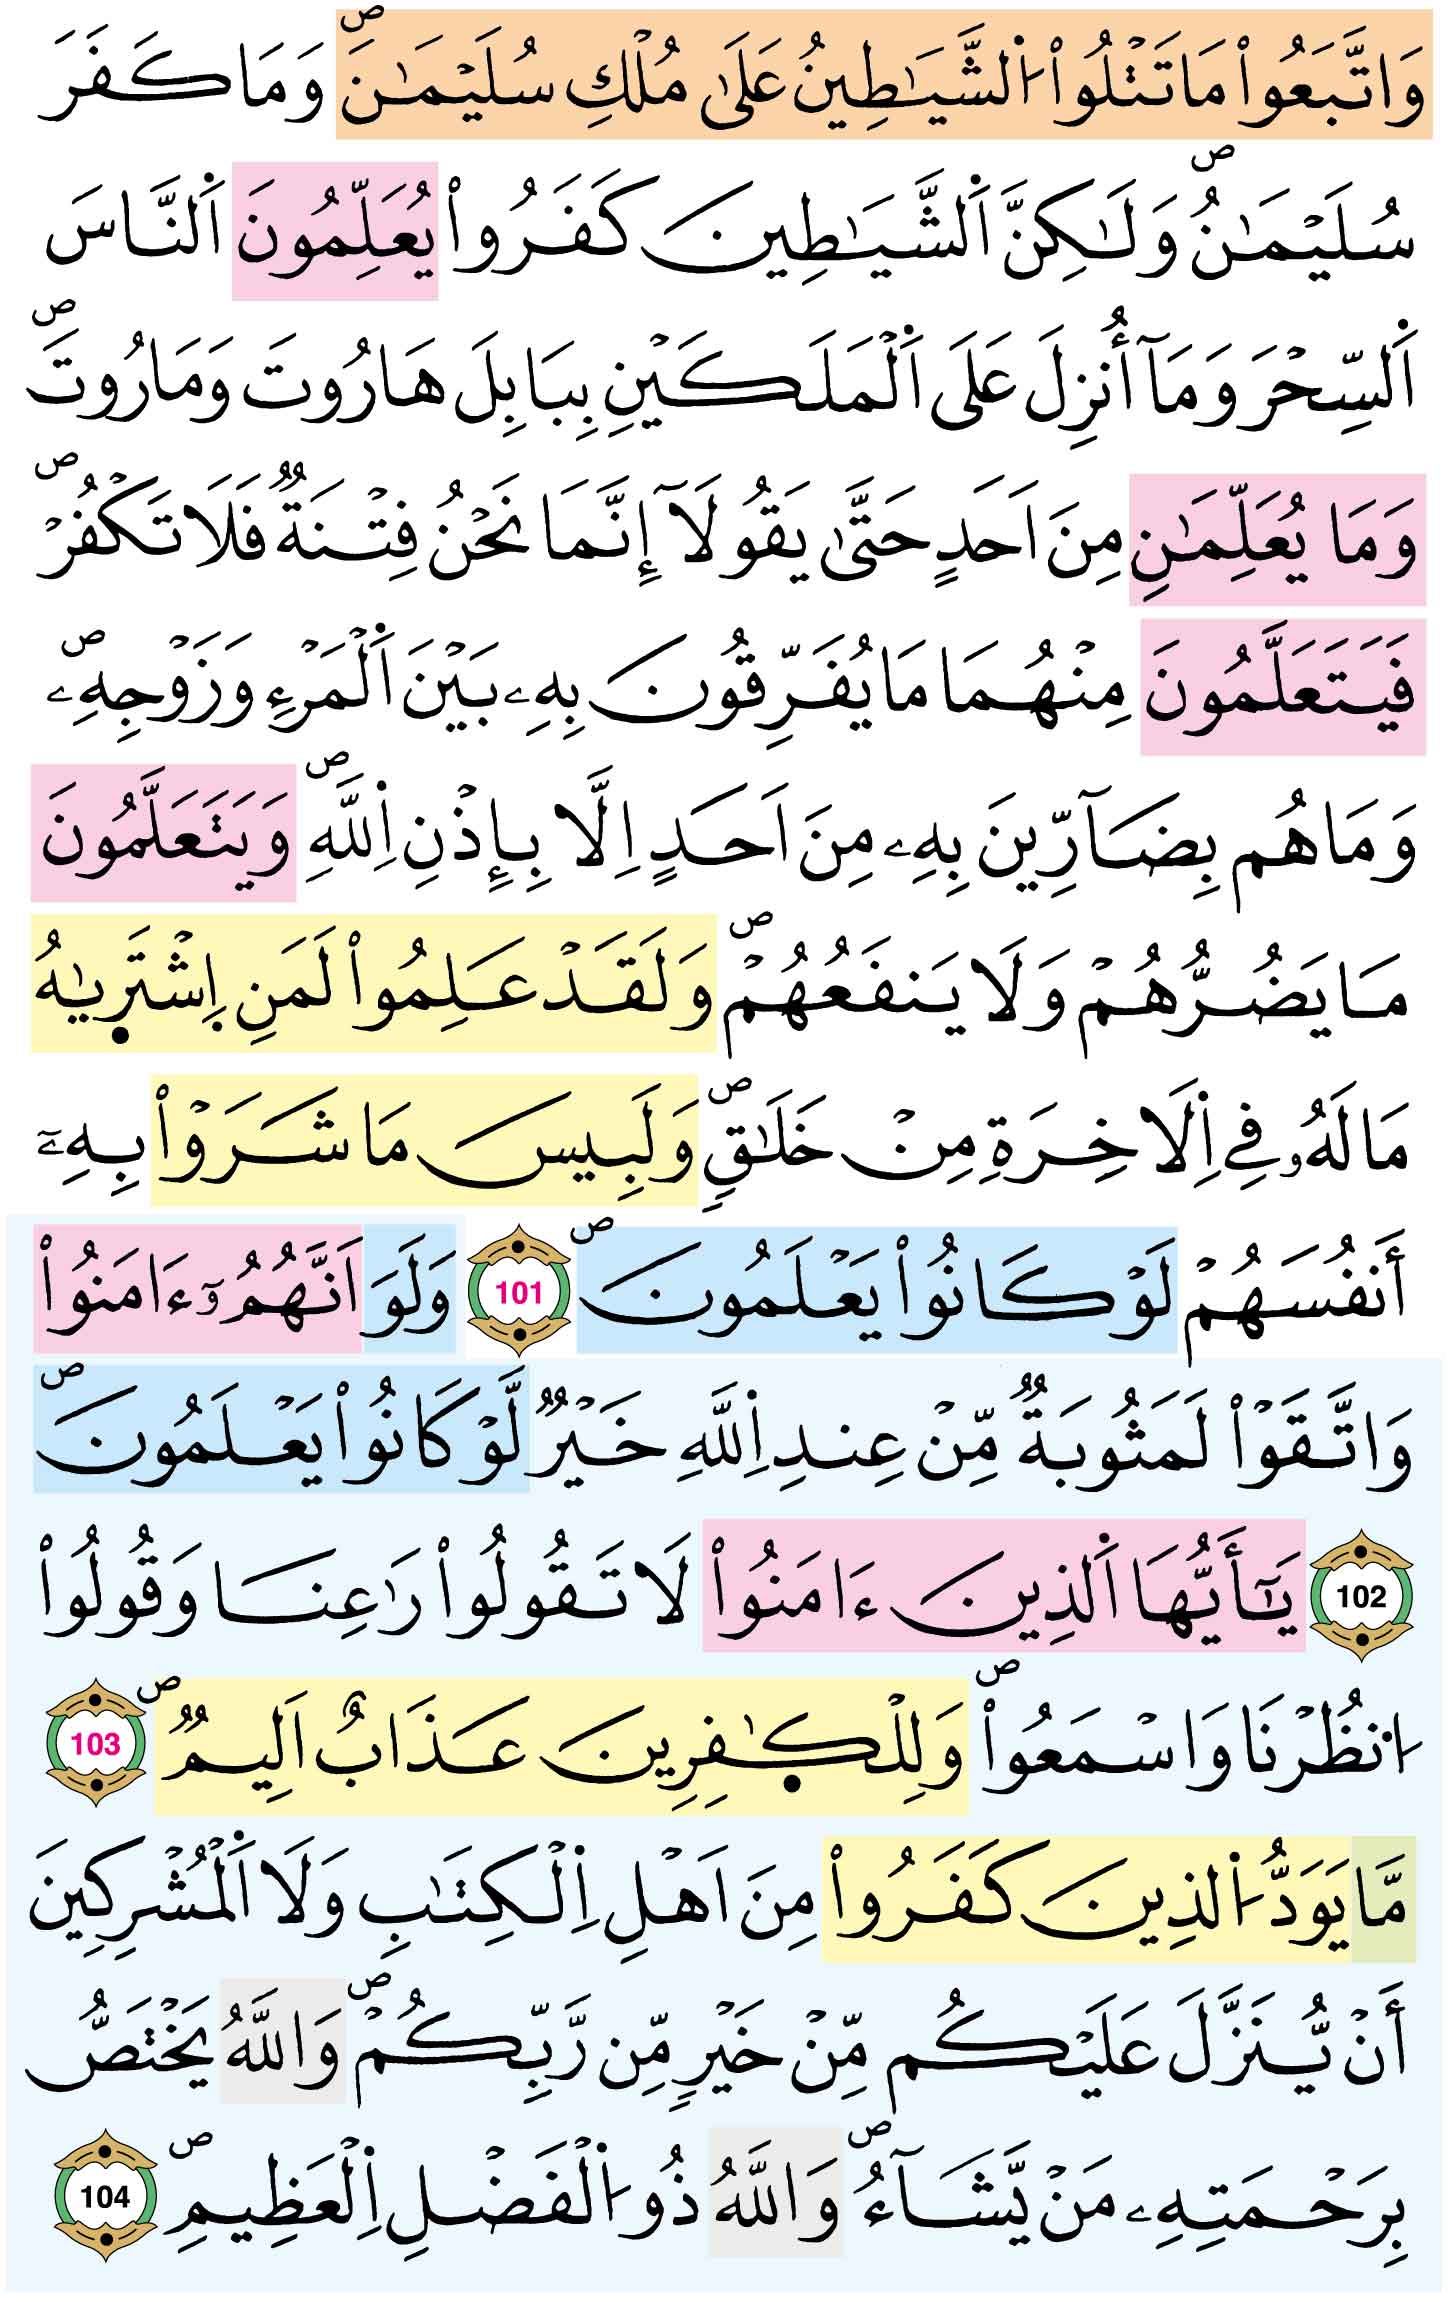 وَاتَّبَعُواْ مَا تَتْلُواْ اُ۬لشَّيَٰطِينُ عَلَىٰ مُلْكِ سُلَيْمَٰنَۖ وَمَا كَفَرَ
سُلَيْمَٰنُۖ وَلَٰكِنَّ اَ۬لشَّيَٰطِينَ كَفَرُواْ يُعَلِّمُونَ اَ۬لنَّاسَ
اَ۬لسِّحْرَ وَمَآ أُنزِلَ عَلَى اَ۬لْمَلَكَيْنِ بِبَابِلَ هَارُوتَ وَمَارُوتَۖ
وَمَا يُعَلِّمَٰنِ مِنَ اَحَدٍ حَتَّىٰ يَقُولَآ إِنَّمَا نَحْنُ فِتْنَةٌ فَلَا تَكْفُرْۖ
فَيَتَعَلَّمُونَ مِنْهُمَا مَا يُفَرِّقُونَ بِهِۦ بَيْنَ اَ۬لْمَرْءِ وَزَوْجِهِۦۖ
وَمَا هُم بِضَآرِّينَ بِهِۦ مِنَ اَحَدٍ اِلَّا بِإِذْنِ اِ۬للَّهِۖ وَيَتَعَلَّمُونَ
مَا يَضُرُّهُمْ وَلَا يَنفَعُهُمْۖ وَلَقَدْ عَلِمُواْ لَمَنِ اِ۪شْتَر۪يٰهُ
مَا لَهُۥ فِے اِ۬لَاخِرَةِ مِنْ خَلَٰقٍۖ وَلَبِيسَ مَا شَرَوْاْ بِهِۦٓ
أَنفُسَهُمْ لَوْ كَانُواْ يَعْلَمُونَۖ 101 وَلَوَ اَنَّهُمُۥٓ ءَامَنُواْ
وَاتَّقَوْاْ لَمَثُوبَةٌ مِّنْ عِندِ اِ۬للَّهِ خَيْرٌ لَّوْ كَانُواْ يَعْلَمُونَۖ
102 يَٰٓأَيُّهَا اَ۬لذِينَ ءَامَنُواْ لَا تَقُولُواْ رَٰعِنَا وَقُولُواْ
اُ۟نظُرْنَا وَاسْمَعُواْۖ وَلِلْكٰ۪فِرِينَ عَذَابٌ اَلِيمٌۖ 103
مَّا يَوَدُّ اُ۬لذِينَ كَفَرُواْ مِنَ اَهْلِ اِ۬لْكِتَٰبِ وَلَا اَ۬لْمُشْرِكِينَ
أَنْ يُّنَزَّلَ عَلَيْكُم مِّنْ خَيْرٍ مِّن رَّبِّكُمْۖ وَاللَّهُ يَخْتَصُّ
بِرَحْمَتِهِۦ مَنْ يَّشَآءُۖ وَاللَّهُ ذُو اُ۬لْفَضْلِ اِ۬لْعَظِيمِۖ 104